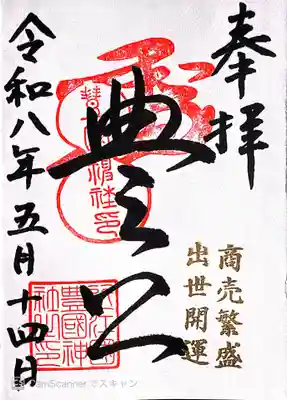 奉拝
商売繁盛
出世開運
豊公
近江國
豊國神
社之印
令和八年五月十四日
CS CamScanner でスキャン